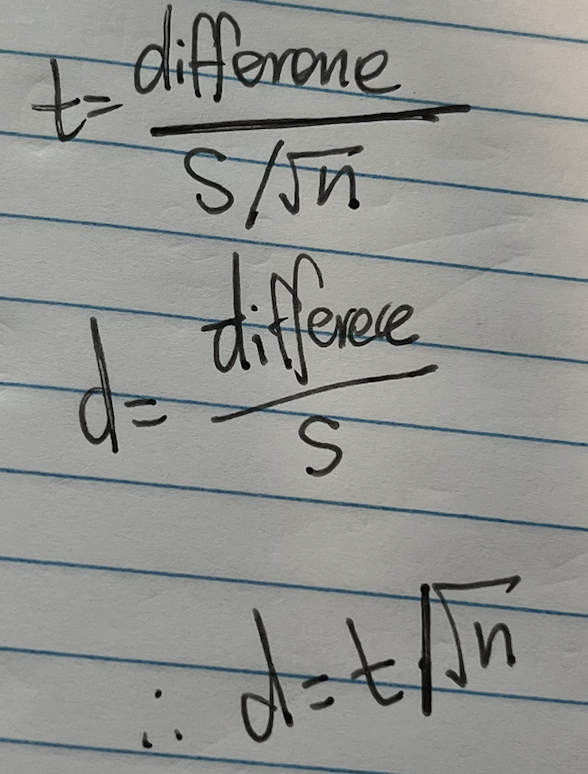 t= differone
S/√n
d= differece
S
∴ d=t|√n